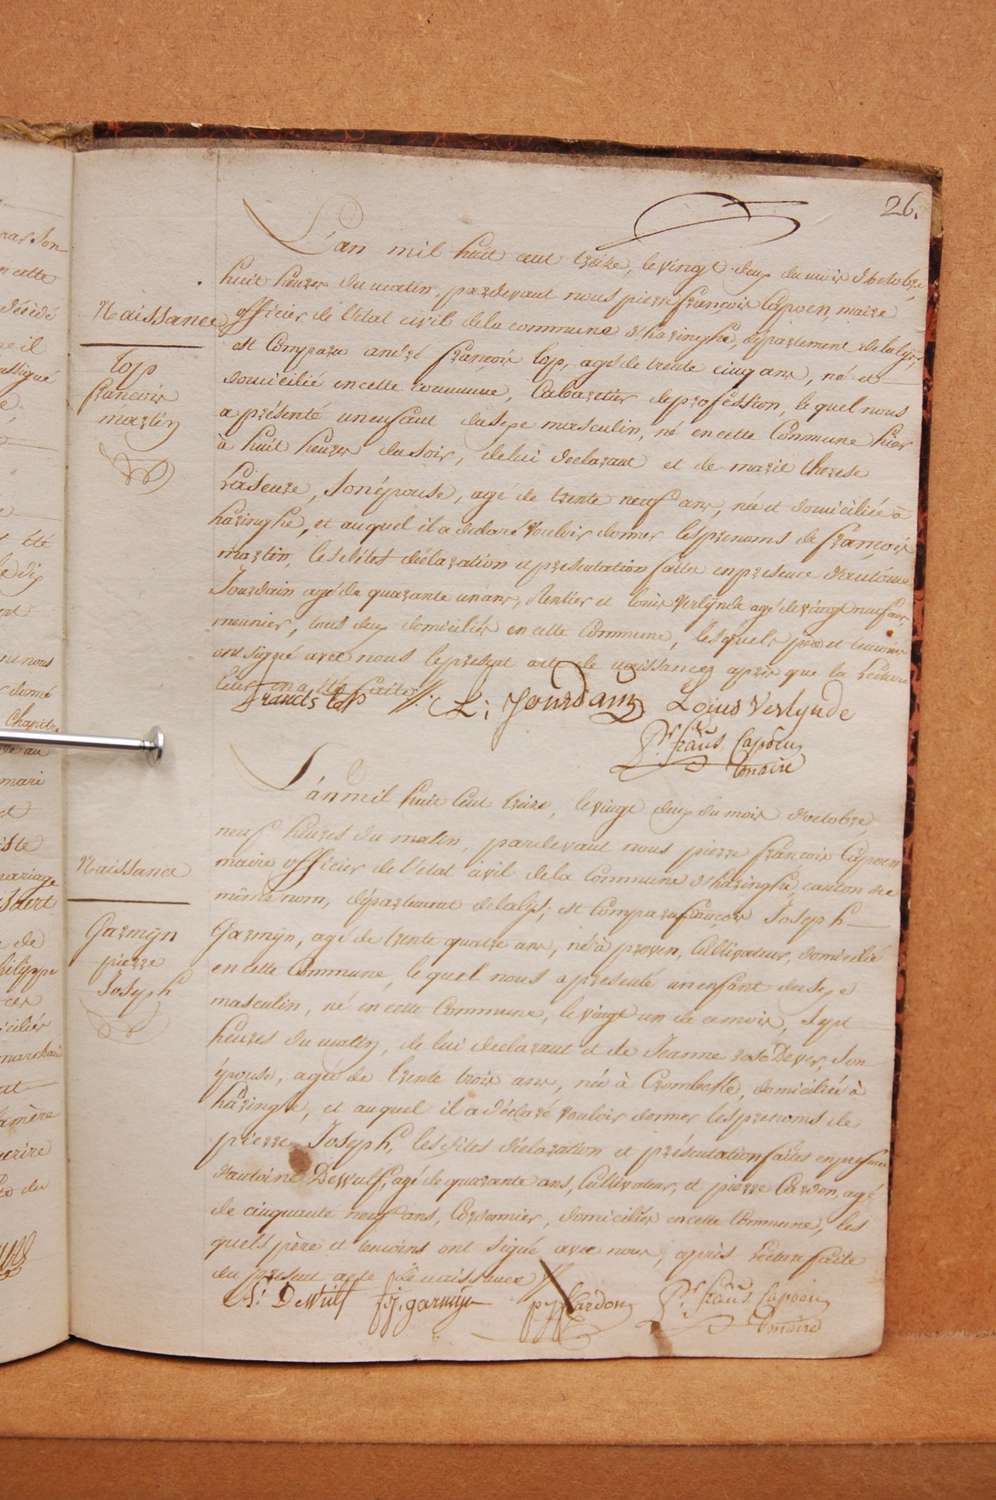 26.
L'an mil huit cent treize, le vingt deux du mois d'octobre,
huit heures du matin, pardevant nous pierre françois Capoen, maire
officier de l'état civil de la commune d'haringhe, département de la lys,
est comparu andré françois top, agé de trente cinq ans, né et
domicilié en cette commune, Cabaretier de profession, le quel nous
a présenté un enfant du sexe masculin, né en cette Commune hier
à huit heures du soir, de lui déclarant et de marie therese
, son épouse, agé de trente neuf ans, née et domiciliée à
haringhe, et auquel il a declaré vouloir donner les prenoms de françois
martin, les dites déclaration et presentation faites en presence d'antoine
Jourdain agé de quarante un ans, Rentier et louis Verlynde agé de vingt neuf ans
meunier, tous deux domiciliés en cette Commune, les quels père et temoins
ont signé avec nous le present acte de naissance, après que la lecture
leur en a été faite
Naissance
top
françois
martin
francis top L: Jourdain Louis Verlynde
Pr. frans. Capoen
maire
L'an mil huit cent treize, le vingt deux du mois d'octobre,
neuf heures du matin, pardevant nous pierre françois Capoen
maire officier de l'état civil de la Commune d'haringhe canton du
même nom, département de la lys, est comparu françois Joseph
Garmÿn, agé de trente quatre ans, né à proven, Cultivateur, domicilié
en cette Commune, le quel nous a presenté un enfant du sexe
masculin, né en cette Commune, le vingt un de ce mois, sept
heures du matin, de lui declarant et de Jeanne rose Dever, son
épouse, agée de trente trois ans, née à Crombeke, domiciliée à
haringhe, et auquel il a déclaré vouloir donner les prenoms de
pierre Joseph, les dites déclaration et présentation faites en presence
d'antoine Dewulf, agé de quarante ans, Cultivateur, et pierre Cardon, agé
de cinquante neuf ans, Cordonnier, domiciliés en cette Commune, les
quels père et temoins ont signé avec nous, après lecture faite
du present acte de naissance
Naissance
Garmÿn
pierre
Joseph
A: DeWulf f: j: garmijn p: j: Cardon Pr. frans. Capoen
maire